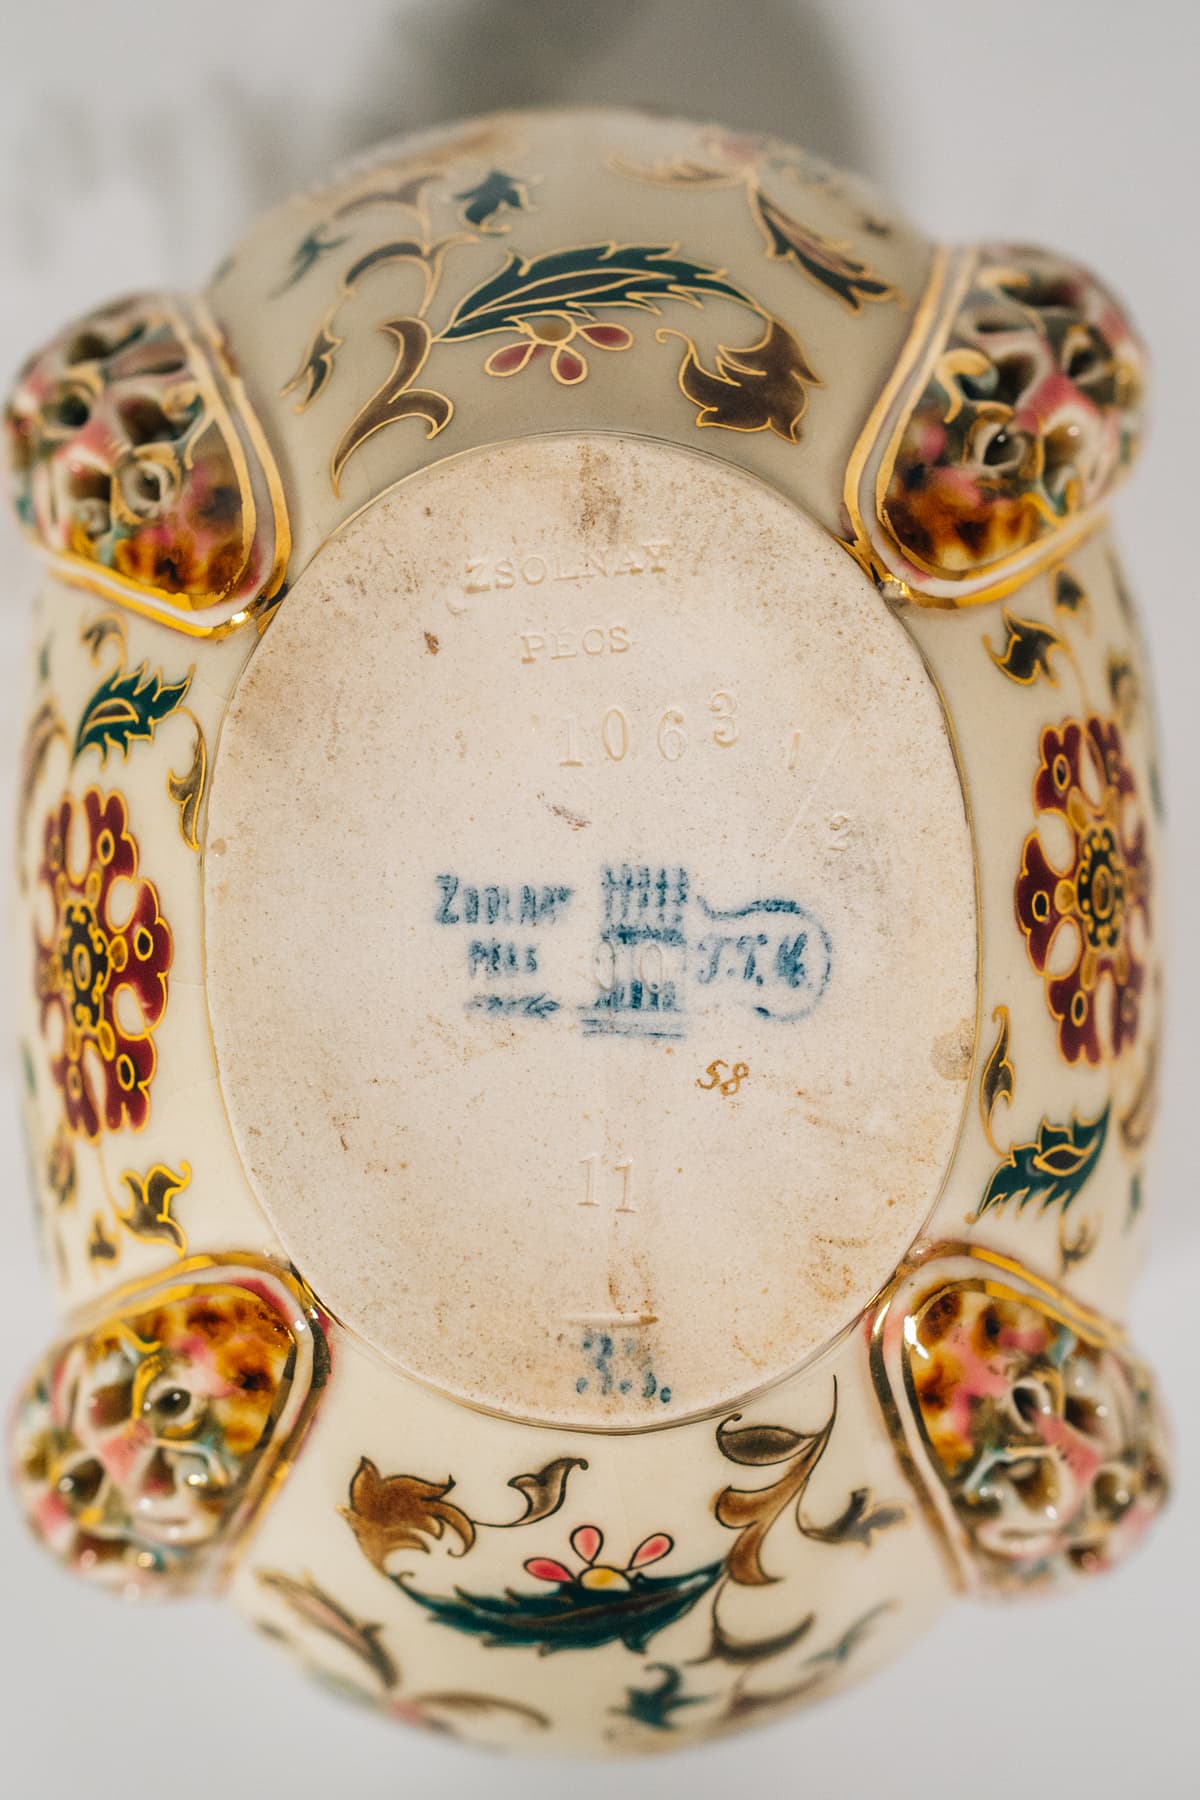 ZSOLNAY
PÉCS
1063
2
ZSOLNAY
PÉCS
T.J.M.
58
11
33.